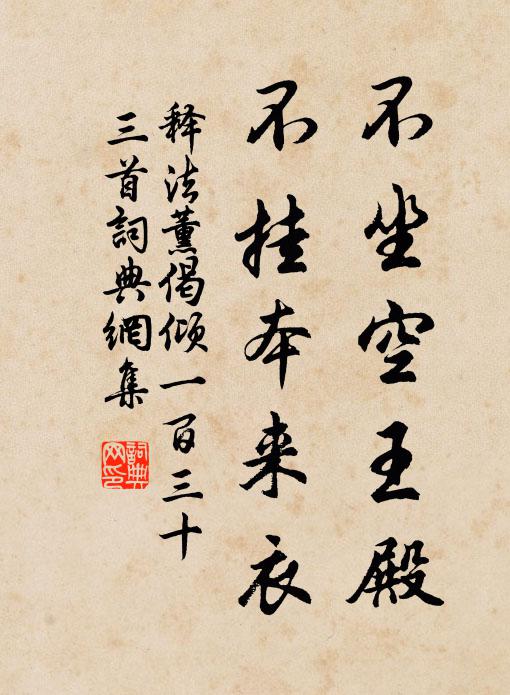 不坐空王殿
不挂本来衣
释法薰偈倾一百三十
三首詞典網集
詞典网印